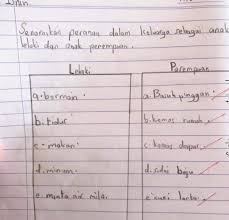 Senaraikan peranan dalam keluarga sebagai anak
lelaki dan anak perempuan.
Lelaki
Perempuan
a. bermain
a. Basuh pinggan
b. tidur
b. kemas rumah
c. makan
c. kemas dapur
d. minum
d. sidai baju
e. minta air nilai
e. cuci lantai